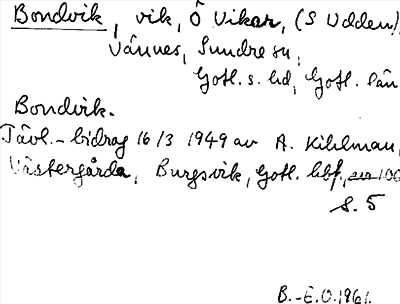 Bondvik, vik, Ö Vikar, (S Udden),
Vännes, Sundre sn,
Gotl. s. hd, Gotl. län
Bondvik.
Tävl.-bidrag 16/3 1949 av A. Kihlman,
Västergårda, Burgsvik, Gotl. hbf,
s. 5
B.-E.O.1961.